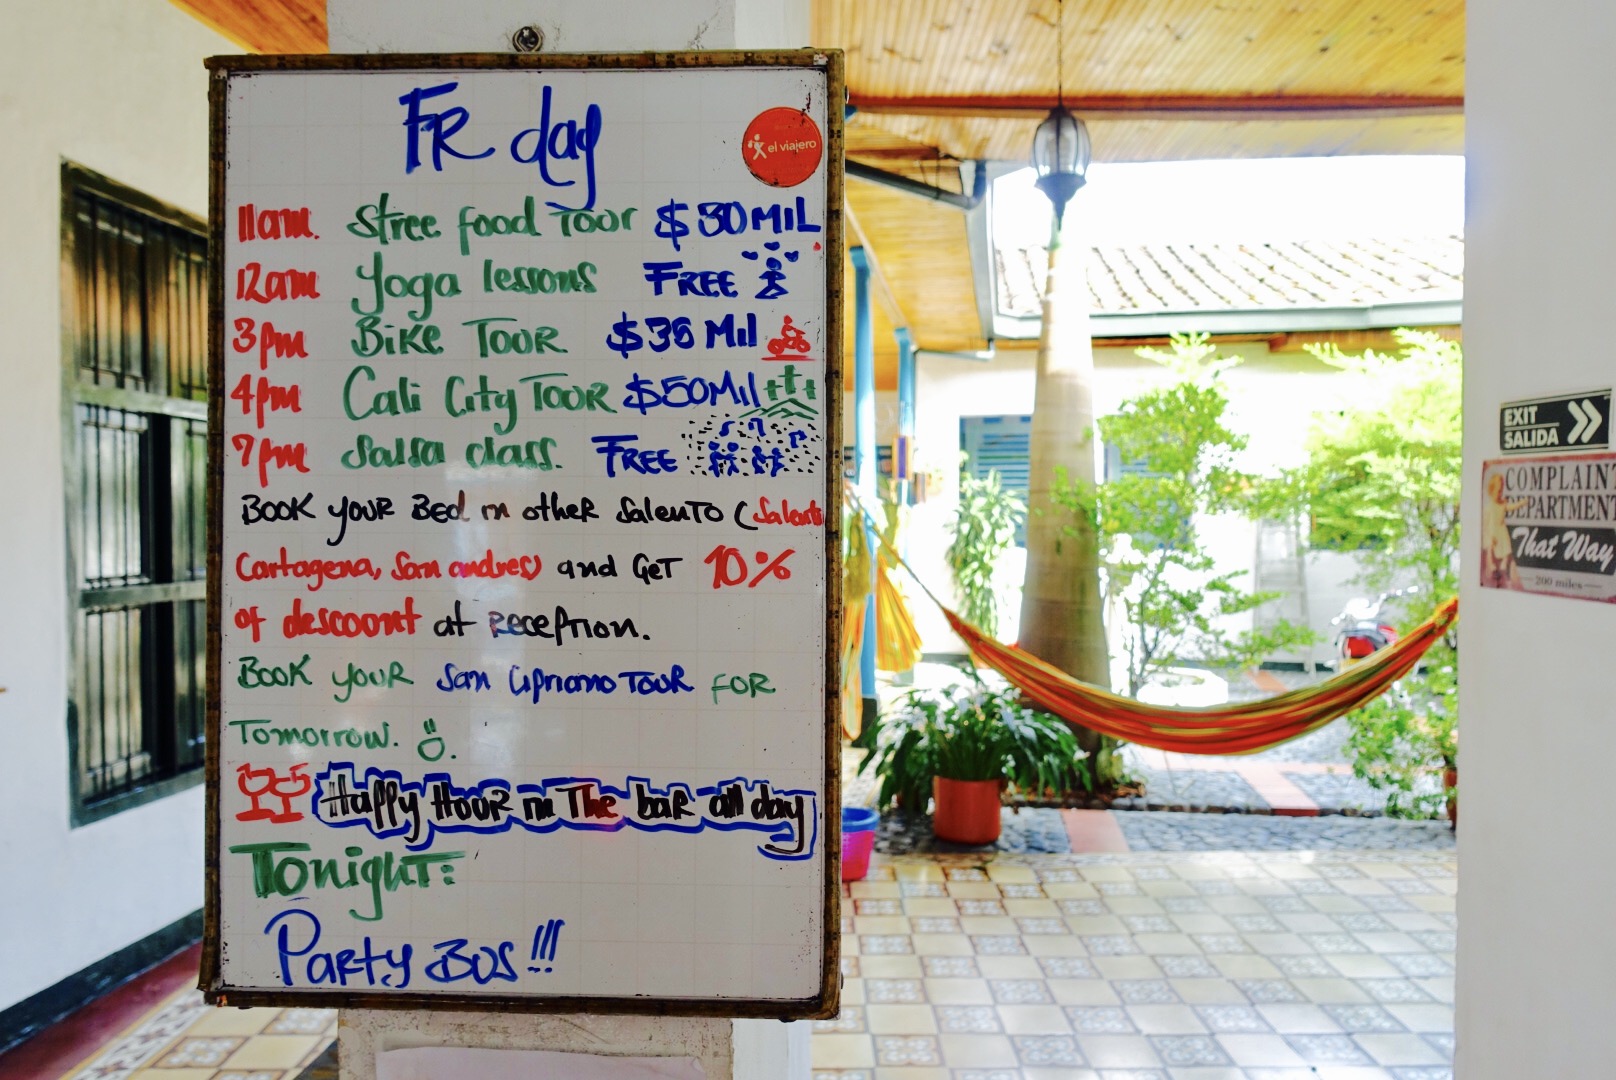 FR day
el viajero
11am. Stree food Toor $30 MIL
12am Yoga lessons FREE
3pm Bike TOOR $35 Mil
4pm Cali City TOOR $50Mil
7pm Salsa class. FREE
BOOK YOUR BED in other SalenTO (Salento
Cartagena, San andres) and GeT 10%
of descoont at Reception.
BOOK YOUR San Cipriano TOUR FOR
Tomorrow.
Happy Hour in The bar all day
Tonight:
Party Bus!!!
EXIT
SALIDA
COMPLAINT
DEPARTMENT
That Way
200 miles